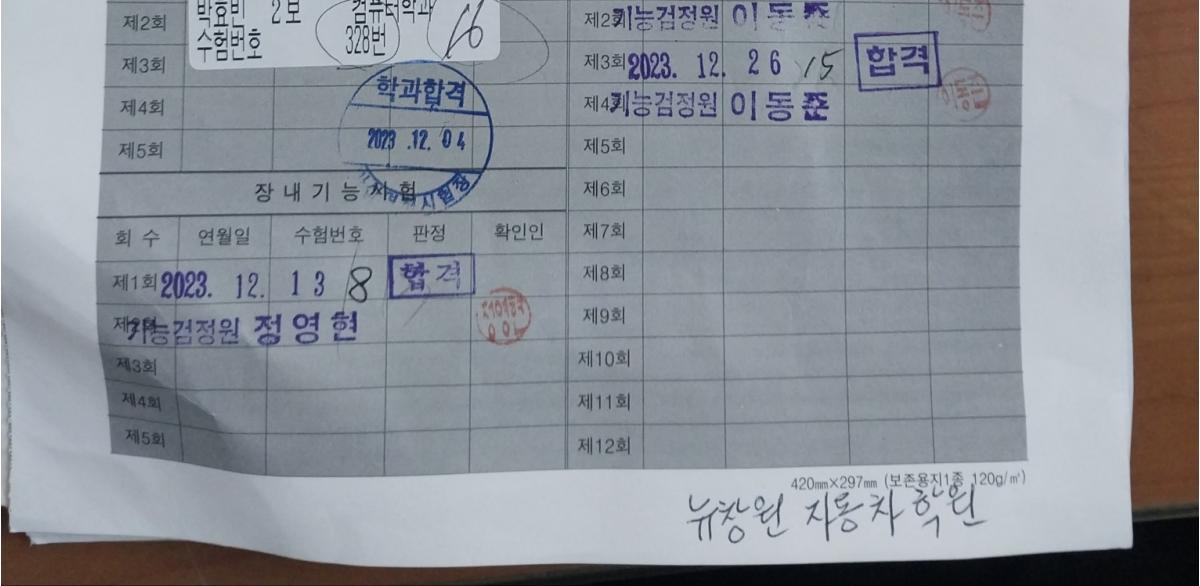 제2회
박효빈 2보 컴퓨터학과
수험번호 328번 26
제3회
제4회
제5회
학과합격
2023.12.04
시험장
장내기능시험
회수 연월일 수험번호 판정 확인인
제1회 2023. 12. 13 8 합격
기능검정원 정영현
제3회
제4회
제5회
제2회 기능검정원 이동준
제3회 2023. 12. 26 15 합격
제4회 기능검정원 이동준
제5회
제6회
제7회
제8회
제9회
제10회
제11회
제12회
420mm×297mm (보존용지1종 120g/㎡)
뉴창원 자동차 학원